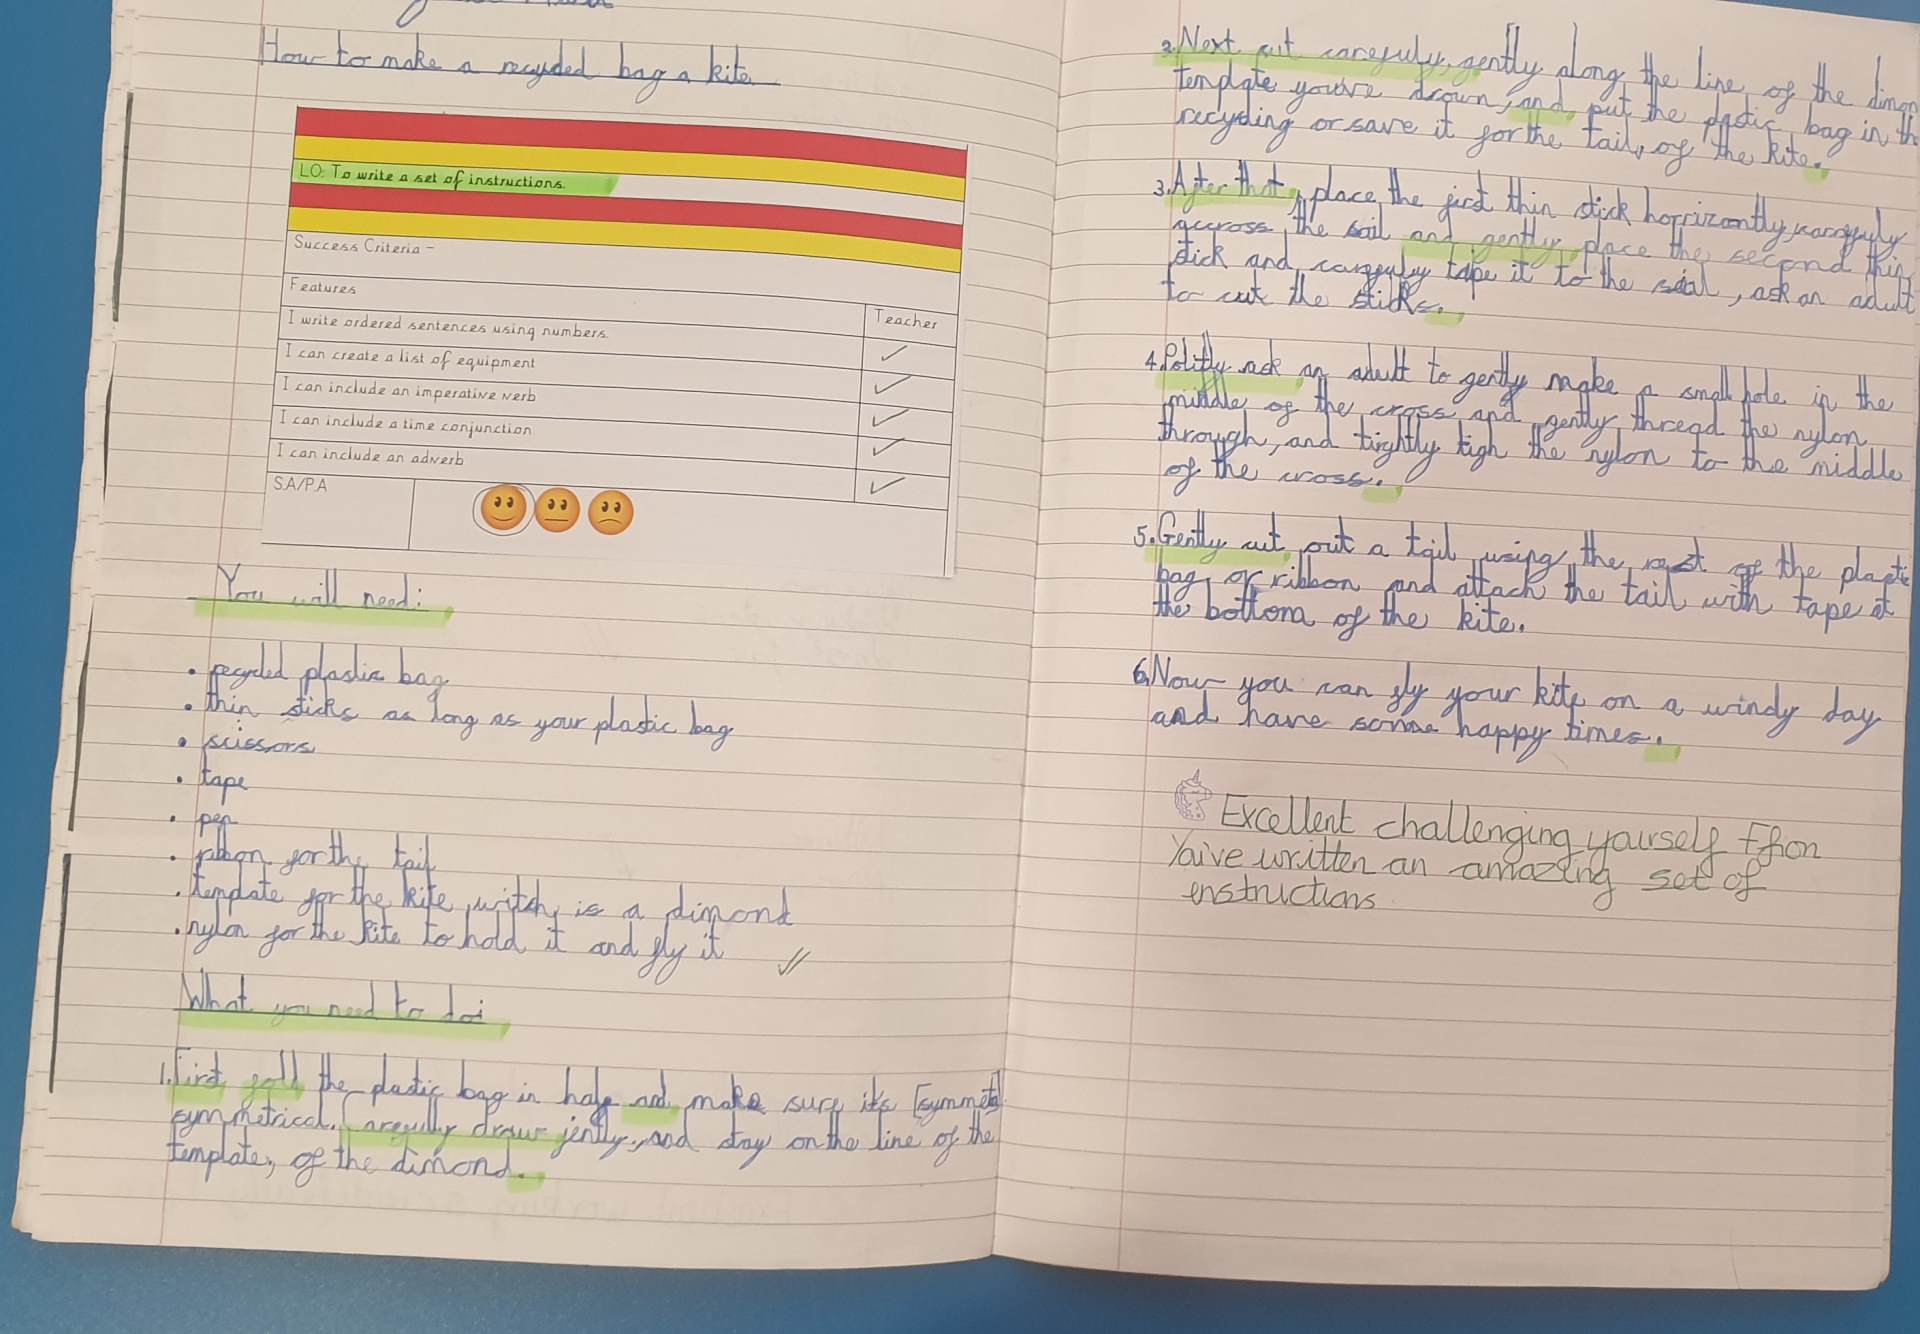 How to make a recycled bag a kite
LO: To write a set of instructions.
Success Criteria –
Features
Teacher
I write ordered sentences using numbers.
I can create a list of equipment
I can include an imperative verb
I can include a time conjunction
I can include an adverb
S.A/P.A
You will need:
• recycled plastic bag
• thin sticks as long as your plastic bag
• scissors
• tape
• pen
• ribbon for the tail
• template for the kite witch is a dimond
• nylon for the kite to hold it and fly it
What you need to do:
1. First, fold the plastic bag in half and make sure its [symmet]
symmetrical. Carefully draw jently, and stay on the line of the
template, of the dimond.
2. Next cut carefuly, gently along the line of the dimon
template you've drawn, and put the plastic bag in th
recycling or save it for the tail, of the kite.
3. After that, place the first thin stick horrizontly, carefuly
accross the sail and gently place the second thin
stick and carefuly tape it to the sail, ask an adult
to cut the sticks.
4. Politly ask an adult to gently make a small hole in the
middle of the cross and gently thread the nylon
through, and tightly tigh the nylon to the middle
of the cross.
5. Gently cut out a tail using the rest of the plastic
bag or ribbon and attach the tail with tape at
the bottom of the kite.
6. Now you can fly your kite on a windy day
and have some happy times.
Excellent challenging yourself Ffion
You've written an amazing set of
instructions